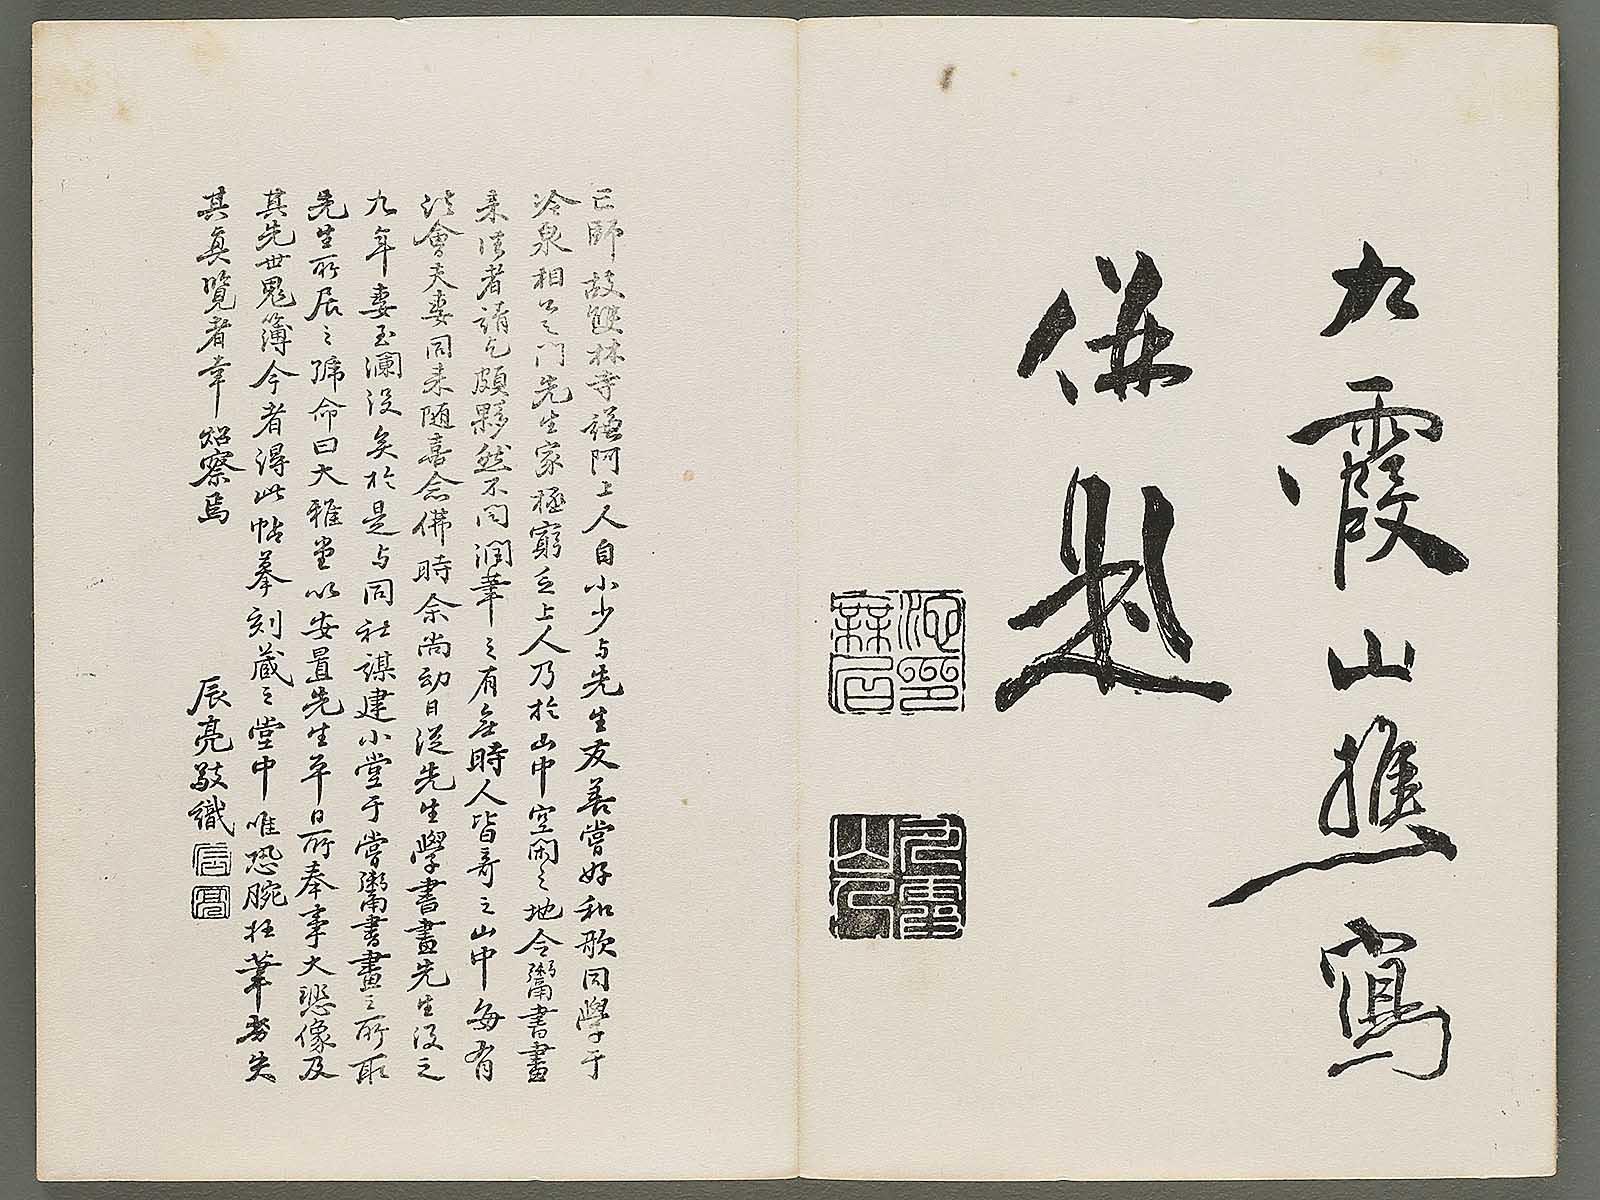 九霞山樵寫
併題
池無名
九霞山人
亡師故雙林寺謙阿上人自小少与先生友善嘗好和歌同學于
冷泉相公之門先生家極窮乏上人乃於山中空閑之地令鬻書畫
来往者請乞頗夥然不問潤筆之有無時人皆奇之山中每有
法會夫妻同来随喜念佛時余尚幼日從先生學書畫先生没之
九年妻玉瀾没矣於是与同社謀建小堂于嘗鬻書畫之所取
先生所居之號命曰大雅堂以安置先生平日所奉事大悲像及
其先世鬼簿今者得此帖摹刻蔵之堂中唯恐腕狂筆勞失
其真覽者幸炤察焉
辰亮敬識
辰亮